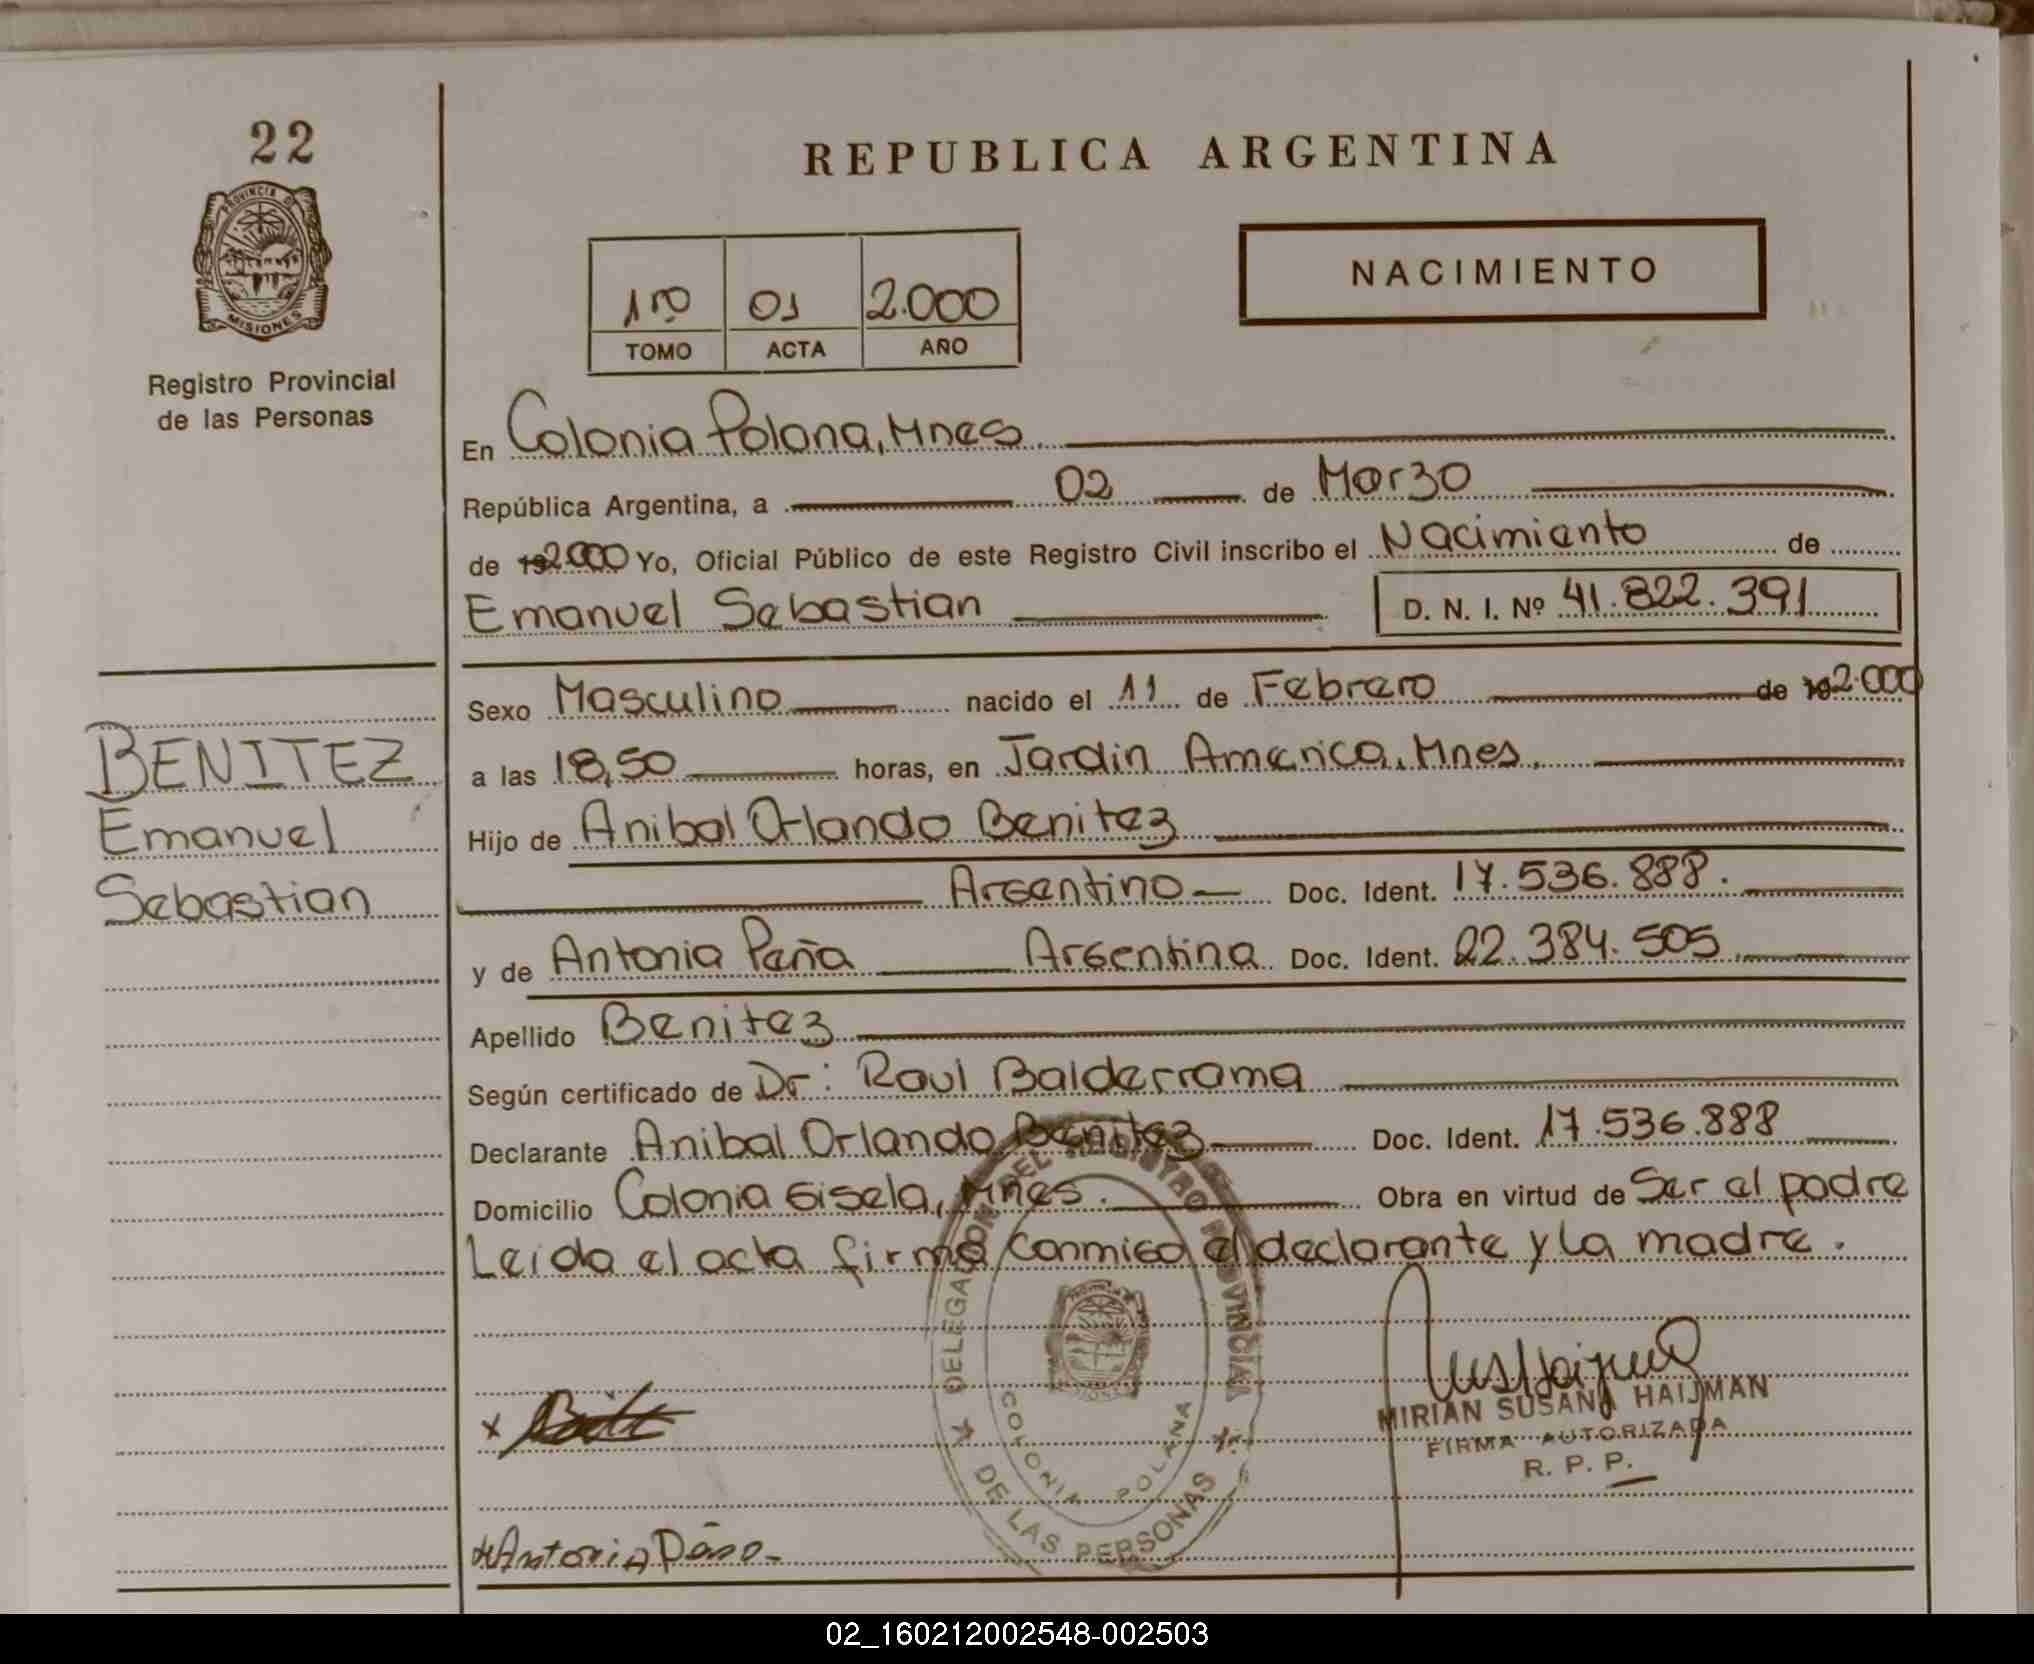 22
PROVINCIA DE
MISIONES
Registro Provincial
de las Personas
BENITEZ
Emanuel
Sebastian
REPUBLICA ARGENTINA
1ro 01 2.000
TOMO ACTA AÑO
NACIMIENTO
En Colonia Polana, Mnes
República Argentina, a 02 de Marzo
de 192.000 Yo, Oficial Público de este Registro Civil inscribo el Nacimiento de
Emanuel Sebastian D. N. I. Nº 41.822.391
Sexo Masculino nacido el 11 de Febrero de 192.000
a las 18,50 horas, en Jardin America, Mnes.
Hijo de Anibal Orlando Benitez
Argentino Doc. Ident. 17.536.888.
y de Antonia Peña Argentina Doc. Ident. 22.384.505
Apellido Benitez
Según certificado de Dr: Raul Balderrama
Declarante Anibal Orlando Benitez Doc. Ident. 17.536.888
Domicilio Colonia Gisela, Mnes. Obra en virtud de Ser el padre
Leida el acta firma conmigo el declarante y la madre.
DELEGACION DEL REGISTRO PROVINCIAL
DE LAS PERSONAS
COLONIA POLANA
MIRIAN SUSANA HAIJMAN
FIRMA AUTORIZADA
R. P. P.
x
Antonia
02_160212002548-002503